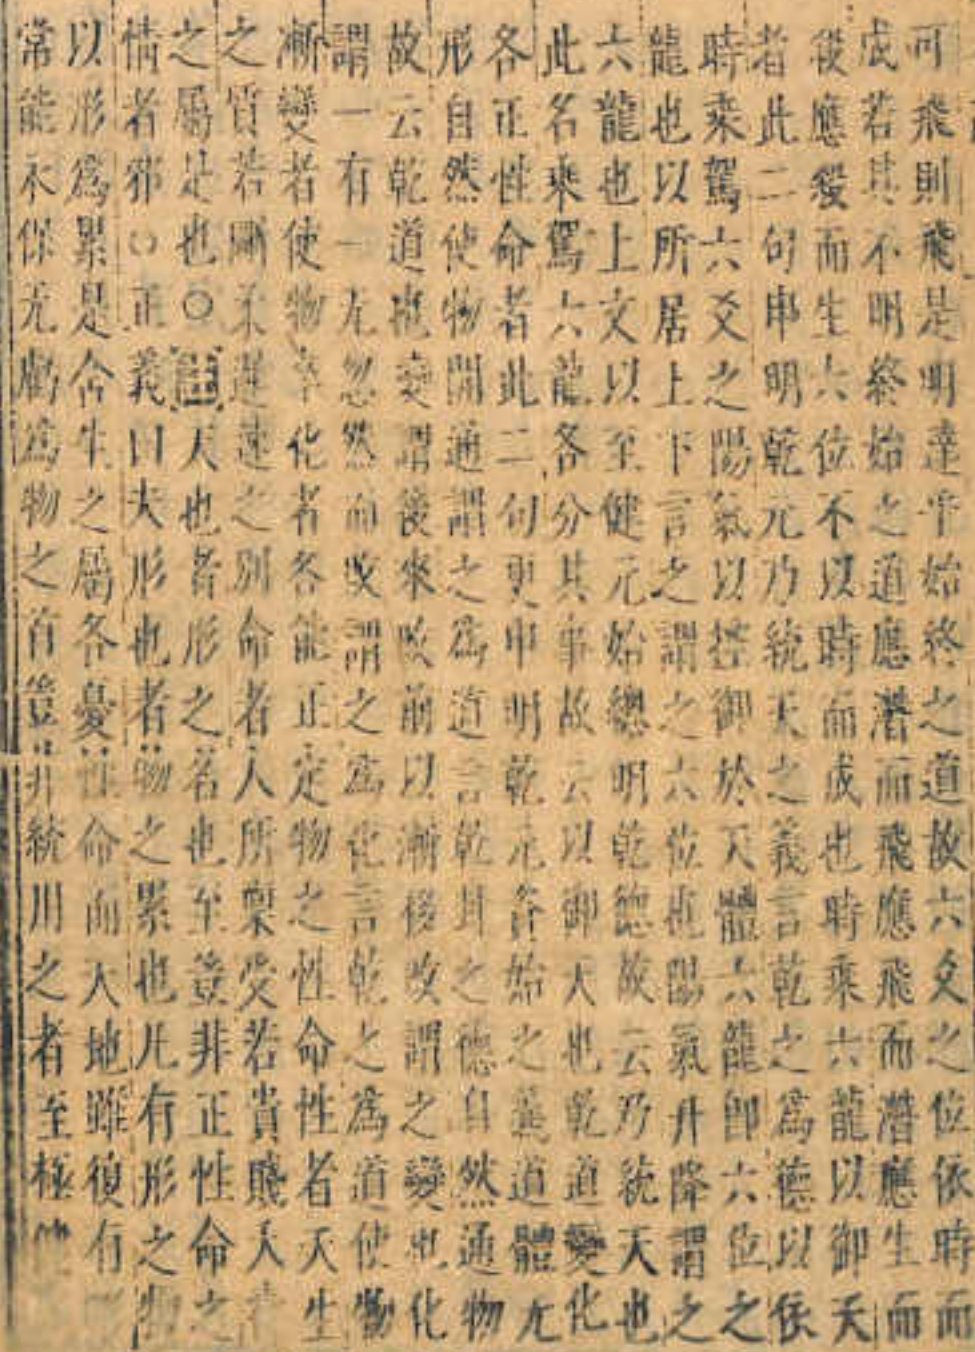 可飛則飛是明達乎始終之道故六爻之位依時而
成若其不明終始之道應潛而飛應飛而潛應生而
後應殺而生六位不以時而成也時乘六龍以御天
者此二句申明乾元乃統天之義言乾之爲德以依
時乘駕六爻之陽氣以控御於天體六龍卽六位之
龍也以所居上下言之謂之六位也陽氣升降謂之
六龍也上文以至健元始總明乾德故云乃統天也
此名乘駕六龍各分其事故云以御天也乾道變化
各正性命者此二句更申明乾元資始之義道體无
形自然使物開通謂之爲道言乾卦之德自然通物
故云乾道也變謂後來改前以漸移改謂之變也化
謂一有一无忽然而改謂之爲化言乾之爲道使物
漸變者使物卒化者各能正定物之性命性者天生
之質若剛柔遲速之別命者人所稟受若貴賤夭壽
之屬是也○註天也者形之名也至豈非正性命之
情者邪○正義曰夫形也者物之累也凡有形之物
以形爲累是含生之屬各憂性命而天地雖復有形
常能永保无虧爲物之首豈非統用之者至極健